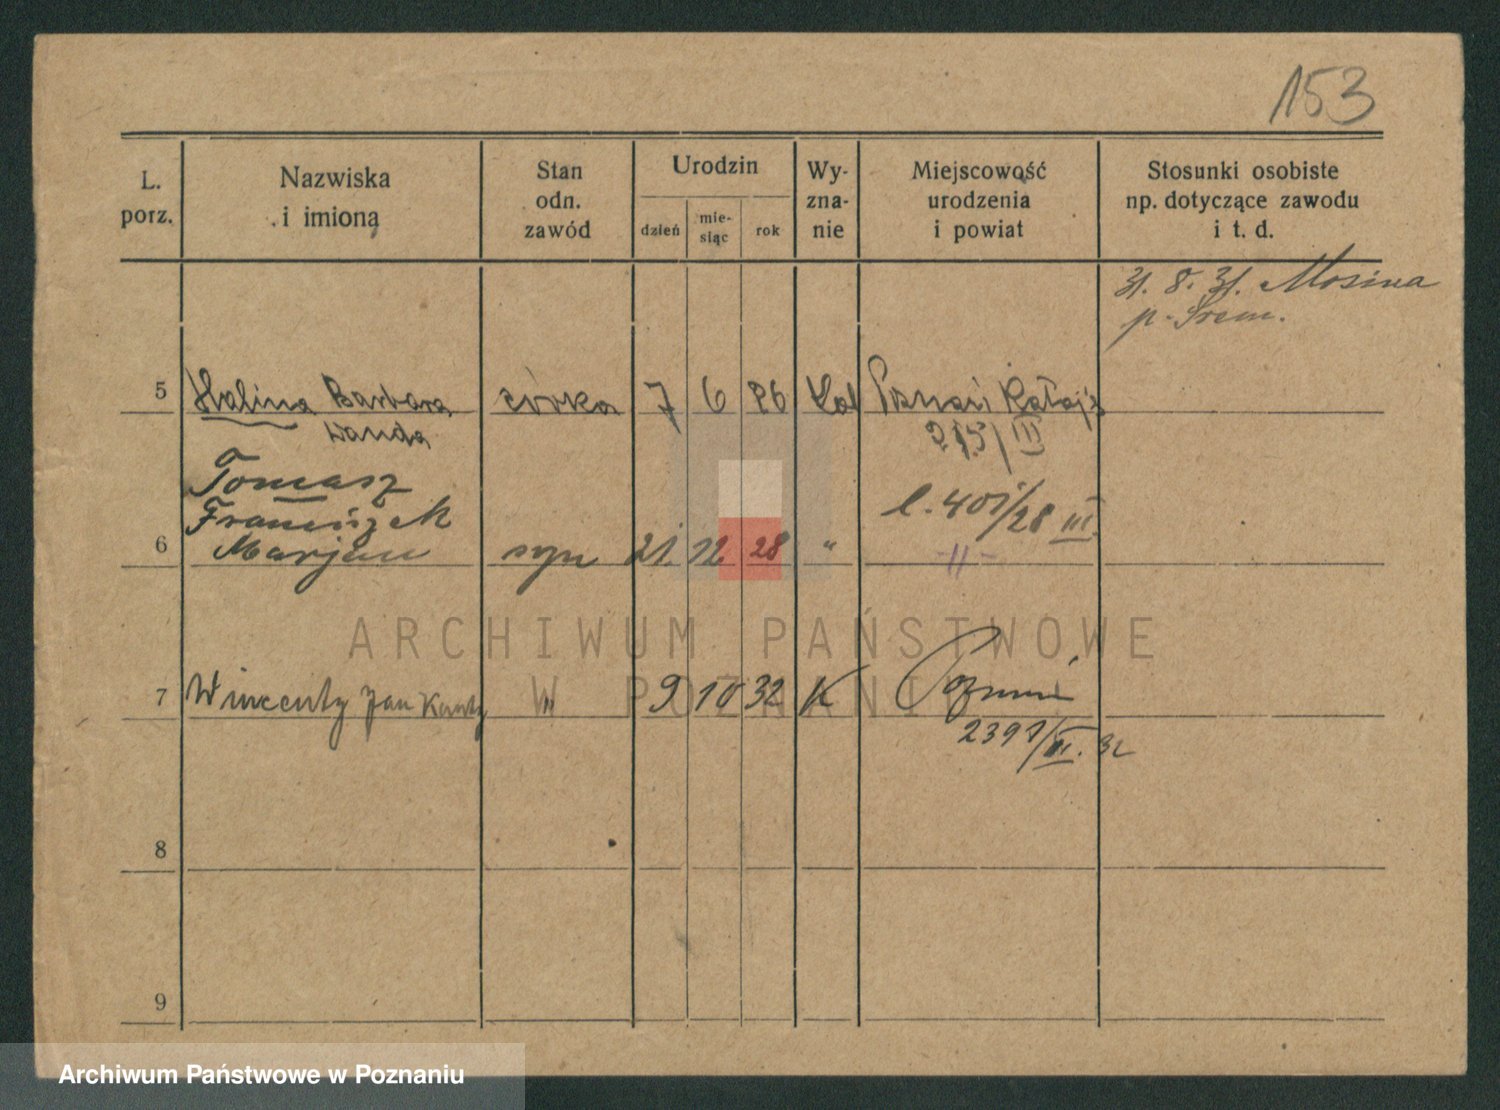 153
L. porz.
Nazwiska i imioną
Stan odn. zawód
Urodzin
dzień
mie-siąc
rok
Wy-zna-nie
Miejscowość urodzenia i powiat
Stosunki osobiste np. dotyczące zawodu i t. d.
31. 8. 31. Mosina
p. Śrem.
5 Halina Barbara córka 7 6 26 kat Poznań
Wanda
215/III
Tomasz
Franciszek l. 401/28 III.
6 Marjan syn 21. 12 28 " -"-
ARCHIWUM PAŃSTWOWE
W POZNANIU
7 Wincenty Jan Kanty " 9 10 32 K Poznań
2391/III. 32
8
9
Archiwum Państwowe w Poznaniu